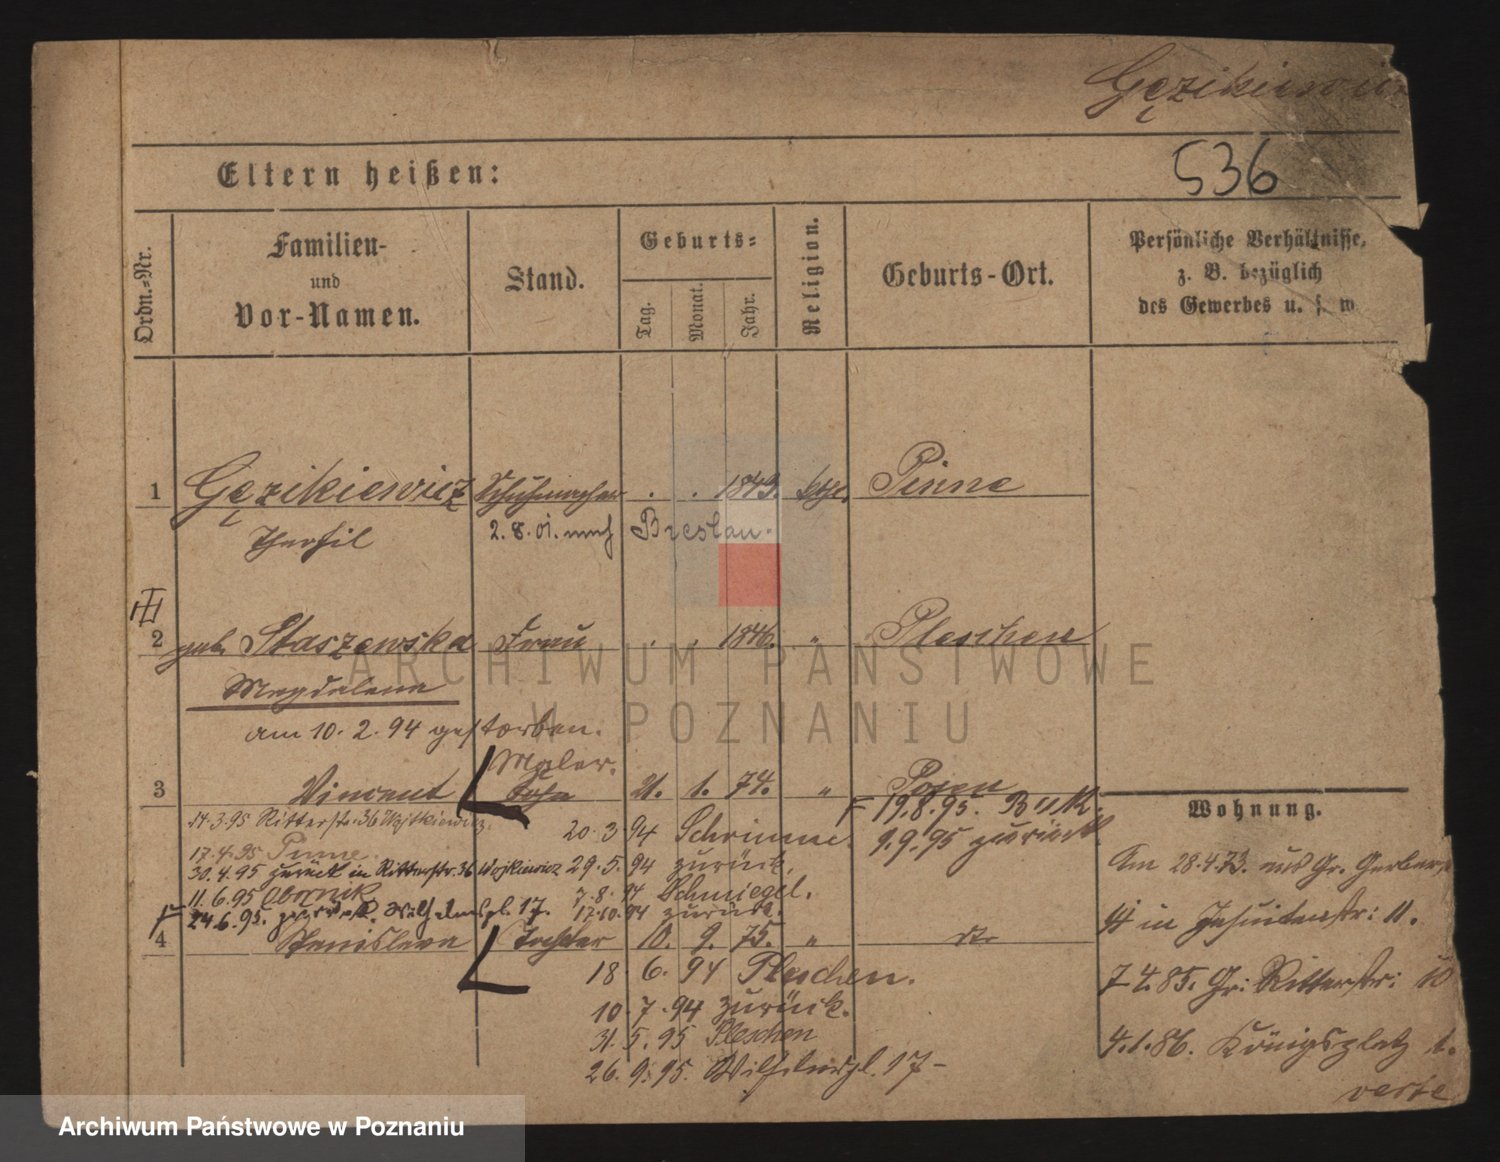 Gęzikiewicz
536
Eltern heißen:
Ordn.-Nr.
Familien-
und
Vor-Namen.
Stand.
Geburts-
Tag.
Monat.
Jahr.
Religion.
Geburts-Ort.
Persönliche Verhältnisse,
z. B. bezüglich
des Gewerbes u. s. w
1 Gęzikiewicz Schuhmacher . . 1843. kath. Pinne
Theofil 2. 8. 01. nach Breslau.
2 geb. Staszewska Frau . . 1846. " Pleschen
Magdalena
am 10. 2. 94 gestorben.
Maler.
3 Vincent Sohn 21. 1. 74. " Posen
19.8.95. Buk.
1.9.95 zurück
14.3.95 Ritterstr. 36
20. 3. 94 Schrimm.
17.4.95 Pinne.
30.4.95 zurück in Ritterstr. 36 Wojkiewicz
29. 5. 94 zurück.
11.6.95 Obornik
7. 8. 94 Schmiegel.
24.6.95. zurück. Wilhelmspl. 17.
17. 10. 94 zurück.
4 Stanislawa Tochter 10. 9. 75. " do
18. 6. 94 Pleschen.
10. 7. 94 zurück.
31. 5. 95 Pleschen
26. 9. 95. Wilhelmspl. 17-
Wohnung.
Am 28.4.73. aus Gr. Gerberstr
4 in Jesuitenstr: 11.
7 4. 85. Gr: Ritterstr: 10
4. 1. 86. Königsplatz 1.
verte
ARCHIWUM PAŃSTWOWE
W POZNANIU
Archiwum Państwowe w Poznaniu